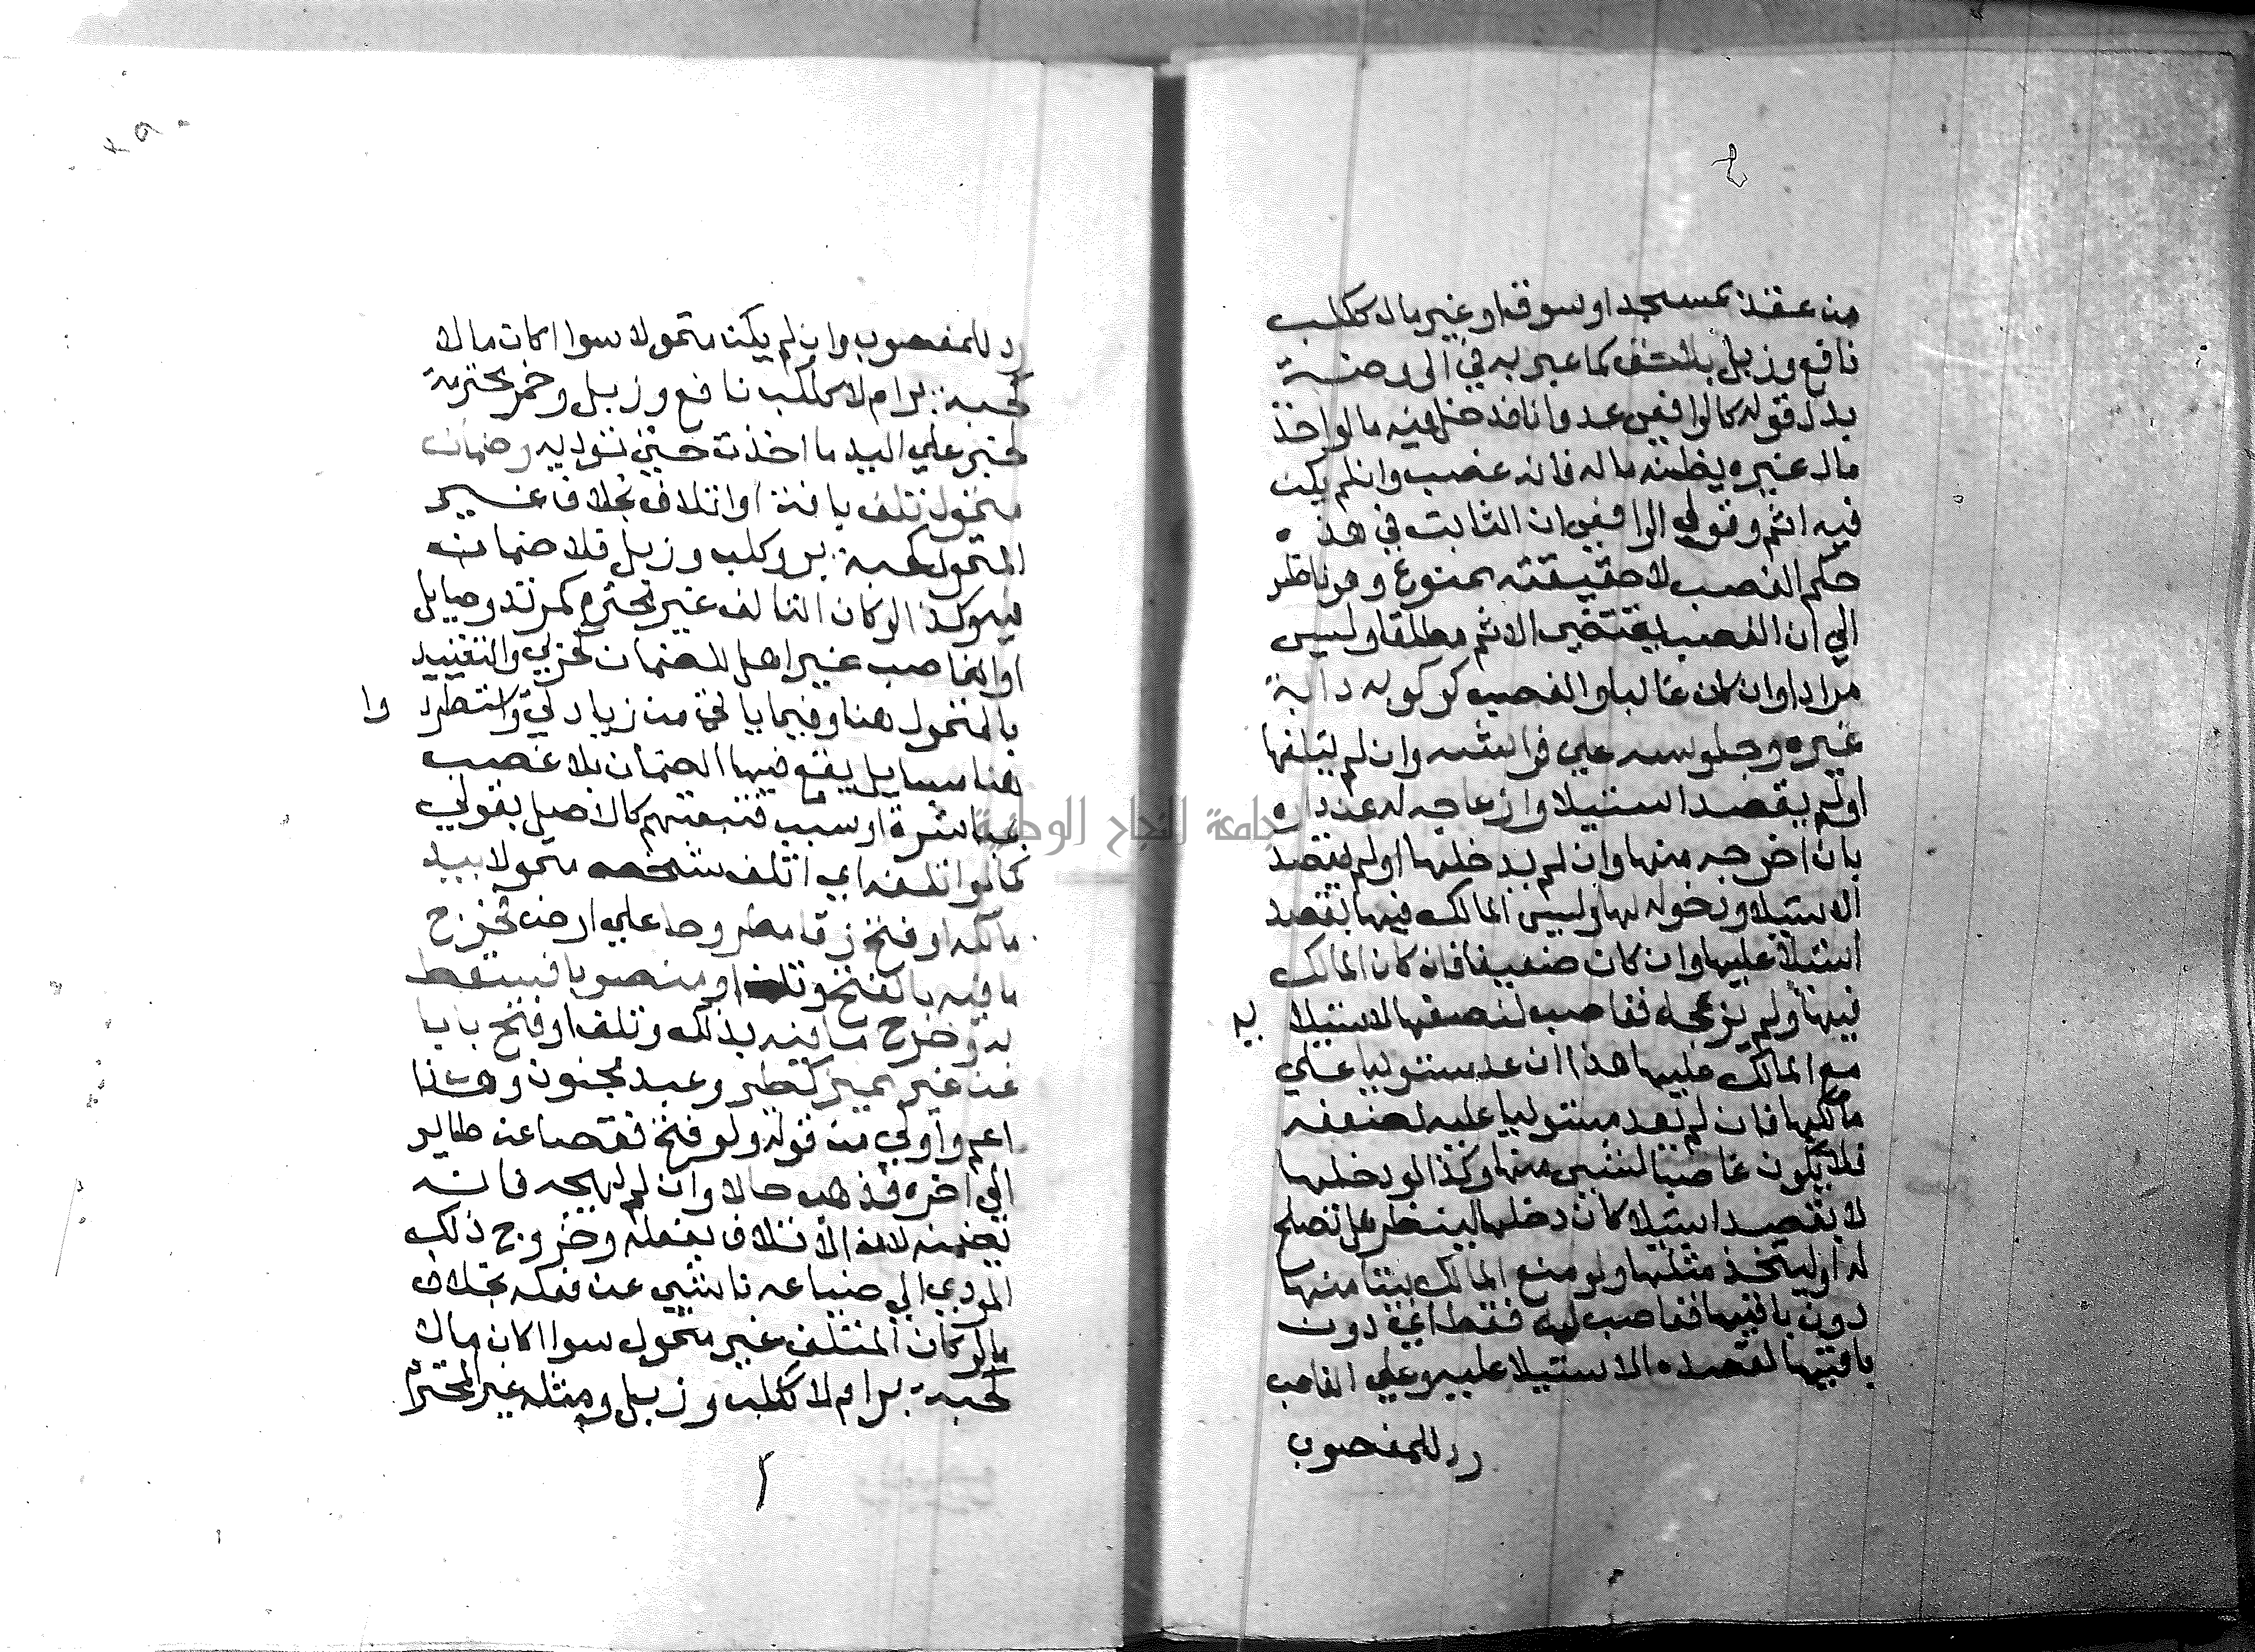 من عقد بمسجد او سوق او غير مال ككلب
نافع وزبل بلا حق كما عبر به في الروضة
بدل قوله كالرافعي عدوانا فدخل فيه ما لو اخذ
مال غيره يظنه ماله فانه غصب وان لم يكن
فيه اثم وقول الرافعي ان الثابت في هذه
حكم الغصب لا حقيقته ممنوع وهو ناظر
الي ان الغصب يقتضي الاثم مطلقا وليس
مرادا وان كان غالبا والغصب كركوبه دابة
غيره وجلوسه علي فراشه وان لم ينقلها
او لم يقصد استيلا وازعاجه له عن داره
بان اخرجه منها وان لم يدخلها او لم يقصد
الاستيلا ودخوله لها وليس المالك فيها بقصد
استيلا عليها وان كان ضعيفا فان كان المالك
فيها ولم يزعجه فغاصب لنصفها لاستيلا يه
مع المالك عليها هذا ان عد مستوليا علي
مالكها فان لم يعد مستوليا عليه لضعفه
فلا يكون غاصبا لشي منها وكذا لو دخلها
لا بقصد استيلا كان دخلها لينظر هل تصلح
له او ليتخذ مثلها ولو منع المالك بيتا منها
دون باقيها فغاصب له فقط اي دون
باقيها لقصده الاستيلا عليه وعلي الغاصب
رد للمغصوب
رد للمغصوب وان لم يكن متمولا سوا اكان مالا
كحبة بر ام لا ككلب نافع وزبل وخمر محترمة
لخبر علي اليد ما اخذت حتي تؤديه وضمان
متمول تلف بافة او اتلاف بخلاف غير
المتمول كحبة بر وكلب وزبل فلا ضمان
فيه وكذا لو كان التالف غير محترم كمرتد وصايل
او الغاصب غير اهل للضمان كحربي والتقييد
بالمتمول هنا وفيما ياتي من زيادتي واستطرد وا
هنا مسايل يقع فيها الضمان بلا غصب
بمباشرة او سبب فتبعتهم كالاصل بقولي
كما لو اتلفه اي اتلف شخص متمولا بيد
مالكه او فتح زقا مطروحا علي ارض فخرج
ما فيه بالفتح وتلف او منصوبا فسقط
به وخرج ما فيه بذلك وتلف او فتح بابا
عن غير مميز كطير وعبد مجنون وهذا
اعم واولي من قوله ولو فتح قفصا عن طاير
الي اخره فذهب حالا وان لم يهيجه فانه
يضمنه لان الاتلاف بفعله وخروج ذلك
المودي الي ضياعه ناشي عن فعله بخلاف
ما لو كان المتلف غير متمول سوا اكان مالا
كحبة بر ام لا ككلب وزبل ومثله غير المحترم